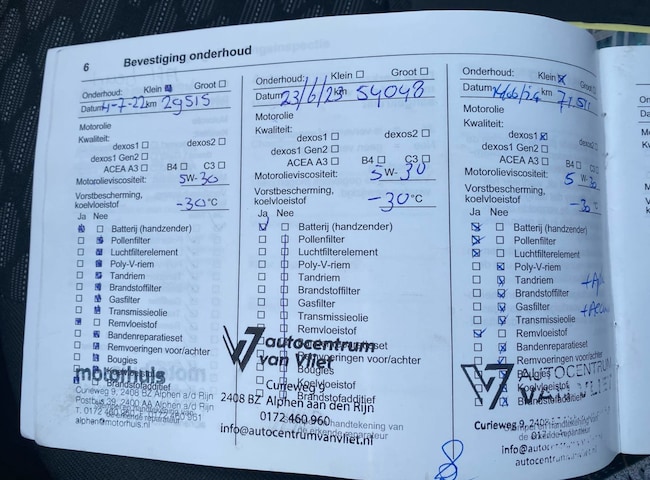 6 Bevestiging onderhoud
Onderhoud: Klein Groot
Datum 4-7-22 km 29515
Motorolie
Kwaliteit:
dexos1 dexos2
dexos1 Gen2
ACEA A3 B4 C3
Motorolieviscositeit: 5W-30
Vorstbescherming,
koelvloeistof -30°C
Ja Nee
Batterij (handzender)
Pollenfilter
Luchtfilterelement
Poly-V-riem
Tandriem
Brandstoffilter
Gasfilter
Transmissieolie
Remvloeistof
Bandenreparatieset
Remvoeringen voor/achter
Bougies
Brandstofadditief
motorhuis
Curieweg 9, 2408 BZ Alphen a/d Rijn
Postbus 29, 2400 AA Alphen a/d Rijn
alphen@motorhuis.nl
Onderhoud: Klein Groot
Datum 23/6/23 km 54048
Motorolie
Kwaliteit:
dexos1 dexos2
dexos1 Gen2
ACEA A3 B4 C3
Motorolieviscositeit: 5W-30
Vorstbescherming,
koelvloeistof -30°C
Ja Nee
Batterij (handzender)
Pollenfilter
Luchtfilterelement
Poly-V-riem
Tandriem
Brandstoffilter
Gasfilter
Transmissieolie
Remvloeistof
Remvoeringen voor/achter
Bougies
Koelvloeistof
Brandstofadditief
autocentrum
van Vliet
Curieweg 9
2408 BZ Alphen aan den Rijn
0172 460 960
info@autocentrumvanvliet.nl
Onderhoud: Klein Groot
Datum km
Motorolie
Kwaliteit:
dexos1 dexos2
dexos1 Gen2
ACEA A3 B4 C3
Motorolieviscositeit: 5 W-30
Vorstbescherming,
koelvloeistof -30°C
Ja Nee
Batterij (handzender)
Pollenfilter
Luchtfilterelement
Poly-V-riem
Tandriem
Brandstoffilter
Gasfilter
Transmissieolie
Remvloeistof
Bandenreparatieset
Remvoeringen voor/achter
Bougies
Koelvloeistof
Brandstofadditief
AUTOCENTRUM
VAN VLIET
Curieweg 9, 2408
8